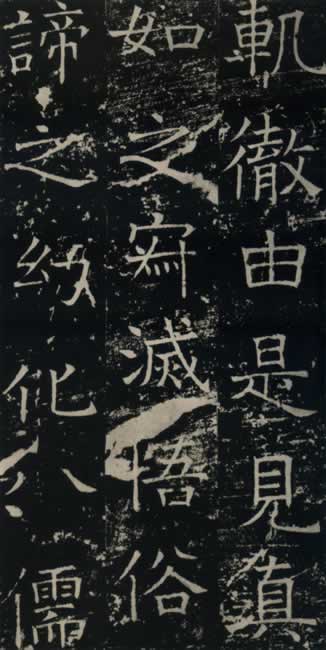 軌徹由是見眞
如之寂滅悟俗
諦之幻化八儒